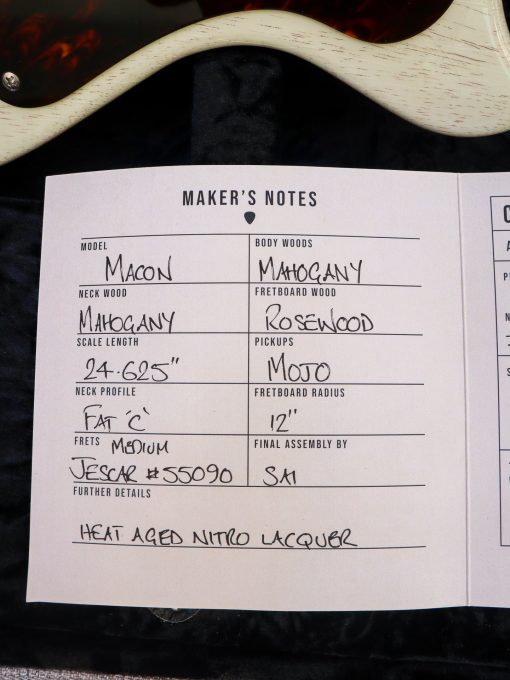 MAKER'S NOTES
MODEL
MACON
BODY WOODS
MAHOGANY
NECK WOOD
MAHOGANY
FRETBOARD WOOD
ROSEWOOD
SCALE LENGTH
24.625"
PICKUPS
MOJO
NECK PROFILE
FAT 'C'
FRETBOARD RADIUS
12"
FRETS MEDIUM
JESCAR #55090
FINAL ASSEMBLY BY
SAI
FURTHER DETAILS
HEAT AGED NITRO LACQUER